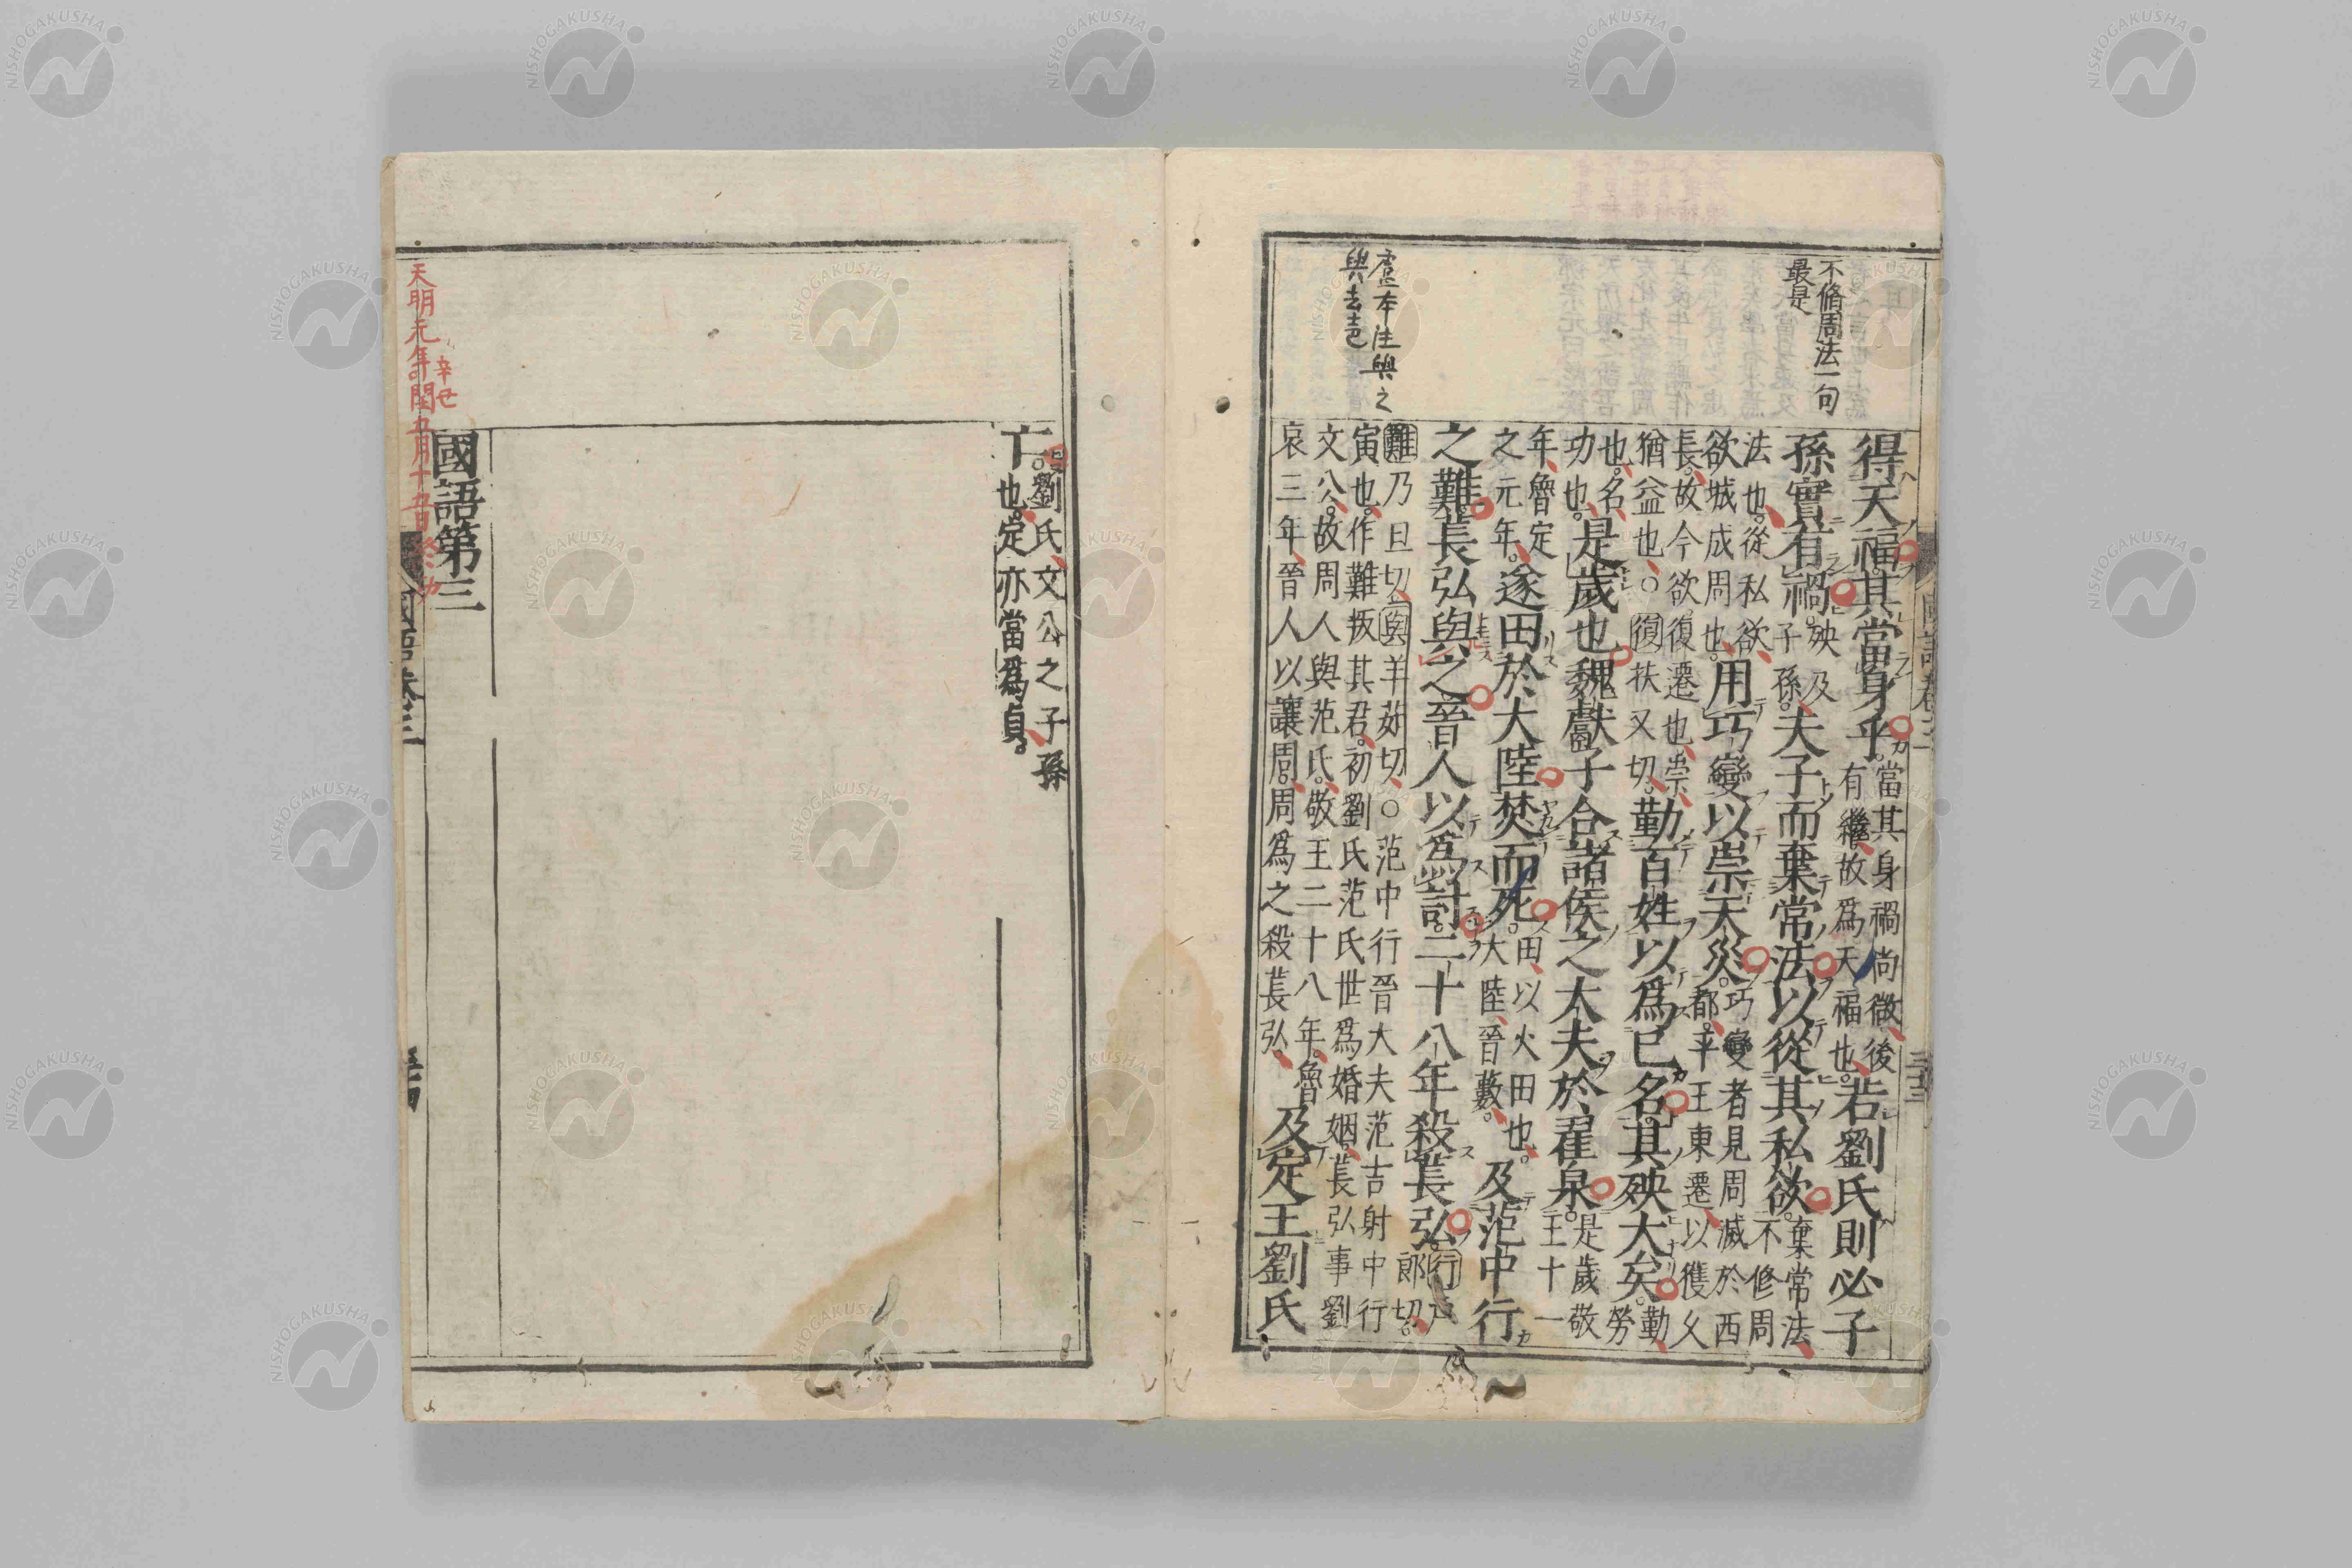 不脩周法一句
最是
得天福其當身乎當其身禍尚微後有繼故爲天福也若劉氏則必子
孫實有禍殃及子孫夫子而棄常法以從其私欲棄常法不修周
法也從私欲欲城成周也用巧變以崇天災巧變者見周滅於西都平王東遷以獲父
長故今欲復遷也崇猶益也○復扶又切勤百姓以爲己名其殃大矣勤勞
也名功也是歲也魏獻子合諸侯之大夫於翟泉是歲敬王十一
年魯定之元年遂田於大陸焚而死田以火田也大陸晉藪及范中行
之難萇弘與之晉人以爲討二十八年殺萇弘行戶郎切
難乃旦切與羊茹切○范中行晉大夫范吉射中行
寅也作難叛其君初劉氏范氏世爲婚姻萇弘事劉
文公故周人與范氏敬王二十八年魯
哀三年晉人以讓周周爲之殺萇弘及定王劉氏
盧本注與之
與去声
亡劉氏文公之子孫
也定亦當爲貞
國語第三
天明元年辛丑閏五月十五日終功
國語卷三